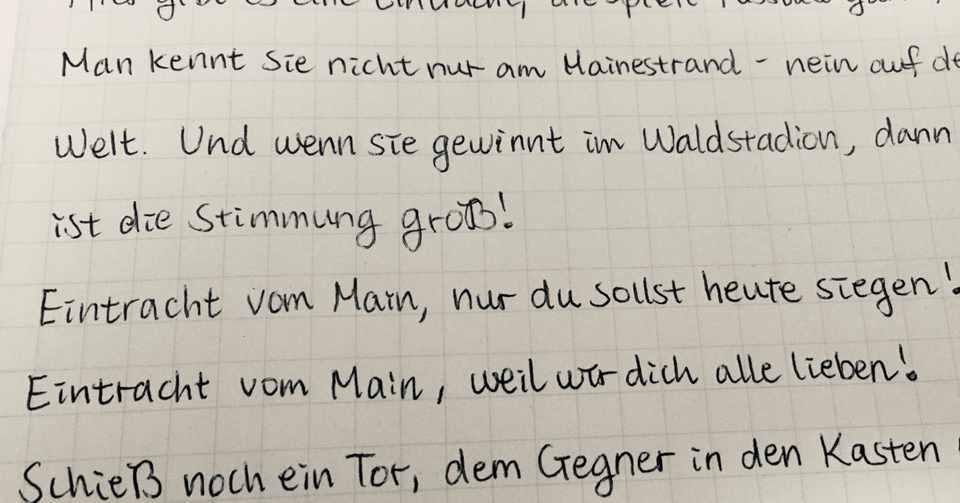 gibt es eine Eintracht, die spielt
Man kennt sie nicht nur am Mainestrand - nein auf
Welt. Und wenn sie gewinnt im Waldstadion, dann
ist die Stimmung groß!
Eintracht vom Main, nur du sollst heute siegen!
Eintracht vom Main, weil wir dich alle lieben!
Schieß noch ein Tor, dem Gegner in den Kasten